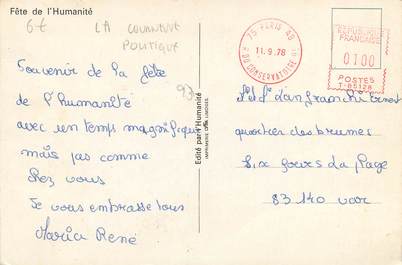 Fête de l'Humanité
6€
LA COURNEUVE
POLITIQUE
93
Souvenir de la fête
de l'humanité
avec un temps magnifique
mais pas comme
chez vous
Je vous embrasse tous
Maria René
Edité par l'Humanité
75 PARIS 48
11.9.78
DU CONSERVATOIRE
REPUBLIQUE
FRANCAISE
0100
POSTES
T-85128
quartier des brumes
Six fours la plage
83 140 var